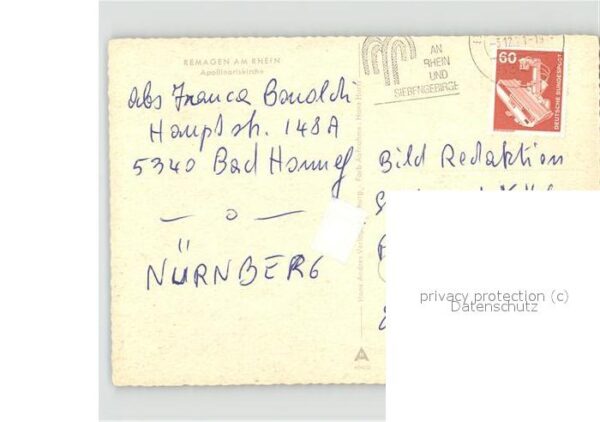 REMAGEN AM RHEIN
Apollinariskirche
abs Franca
Hauptstr. 148A
5340 Bad Honnef
— o —
NÜRNBERG
AN
RHEIN
UND
SIEBENGEBIRGE
60
DEUTSCHE BUNDESPOST
Bild Redaktion
privacy protection (c)
Datenschutz